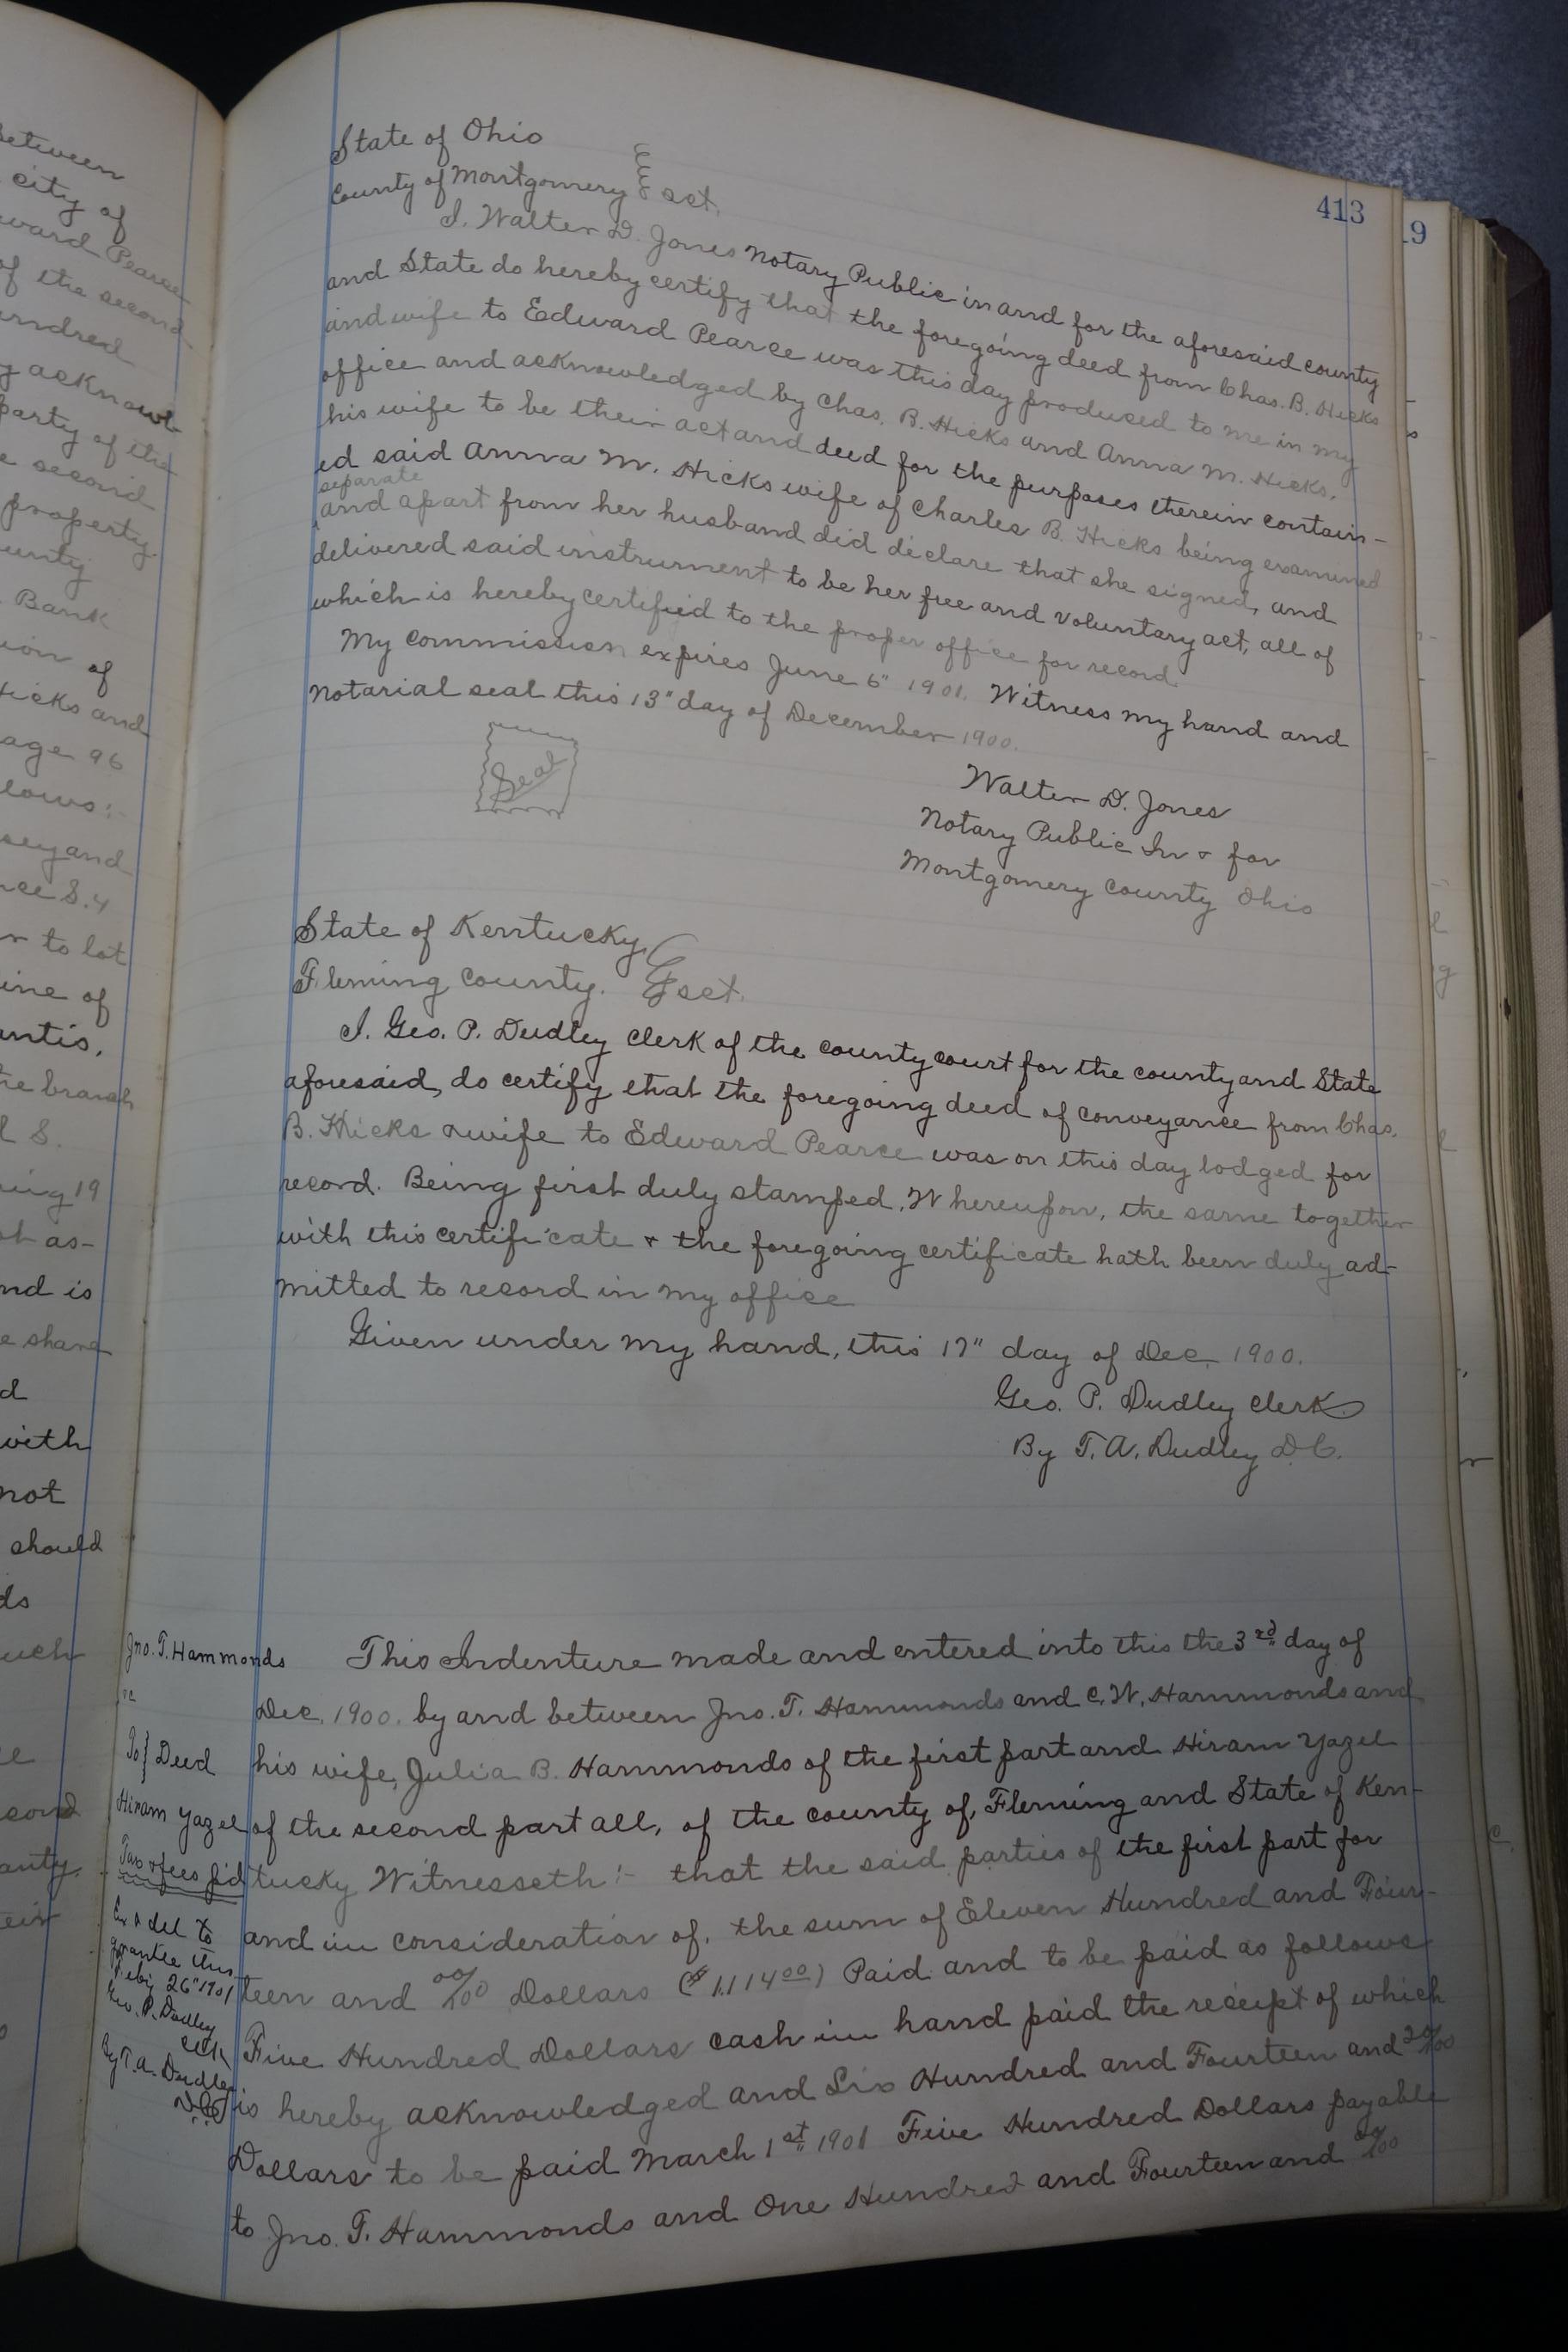 between
city of
ward Pearce
of the second
undred
y acknowl-
party of the
e second
property
unty
Bank
ion of
Hicks and
age 96
lows:-
sey and
nce S. 4
to lot
ine of
untis.
the branch
l S.
ing 19
t as-
nd is
e share
d
with
not
should
ds
uch
cond
anty.
eir
413
19
State of Ohio
County of Montgomery } sct.
I. Walter D. Jones Notary Public in and for the aforesaid county
and State do hereby certify that the foregoing deed from Chas. B. Hicks
and wife to Edward Pearce was this day produced to me in my
office and acknowledged by Chas. B. Hicks and Anna M. Hicks,
his wife to be their act and deed for the purposes therein contain-
ed said Anna M. Hicks wife of Charles B. Hicks being examined
separate
and apart from her husband did declare that she signed, and
delivered said instrument to be her free and voluntary act, all of
which is hereby certified to the proper office for record.
My commission expires June 6" 1901. Witness my hand and
Notarial seal this 13" day of December 1900.
Seal
Walter D. Jones
Notary Public In & for
Montgomery County Ohio
State of Kentucky
Fleming County. } sct.
I. Geo. P. Dudley Clerk of the county court for the county and State
aforesaid, do certify that the foregoing deed of conveyance from Chas.
B. Hicks & wife to Edward Pearce was on this day lodged for
record. Being first duly stamped. Whereupon, the same together
with this certificate & the foregoing certificate hath been duly ad-
mitted to record in my office
Given under my hand, this 17" day of Dec. 1900.
Geo. P. Dudley Clerk
By T. A. Dudley D.C.
Jno. T. Hammonds
To } Deed
Hiram Yazel
Tax & fees pd
Ex & del to
grantee this
Feby 26" 1901
Geo. P. Dudley
Clk
By T. A. Dudley
D.C.
This Indenture made and entered into this the 3rd day of
Dec. 1900. by and between Jno. T. Hammonds and C. W. Hammonds and
his wife, Julia B. Hammonds of the first part and Hiram Yazel
of the second part all, of the county of, Fleming and State of Ken-
tucky Witnesseth:- that the said parties of the first part for
and in consideration of, the sum of Eleven Hundred and Four-
teen and 00/100 Dollars ($1,114 00) Paid and to be paid as follows
Five Hundred Dollars cash in hand paid the receipt of which
is hereby acknowledged and Six Hundred and Fourteen and /100
Dollars to be paid March 1st 1901 Five Hundred Dollars payable
to Jno. T. Hammonds and One Hundred and Fourteen and 00/100